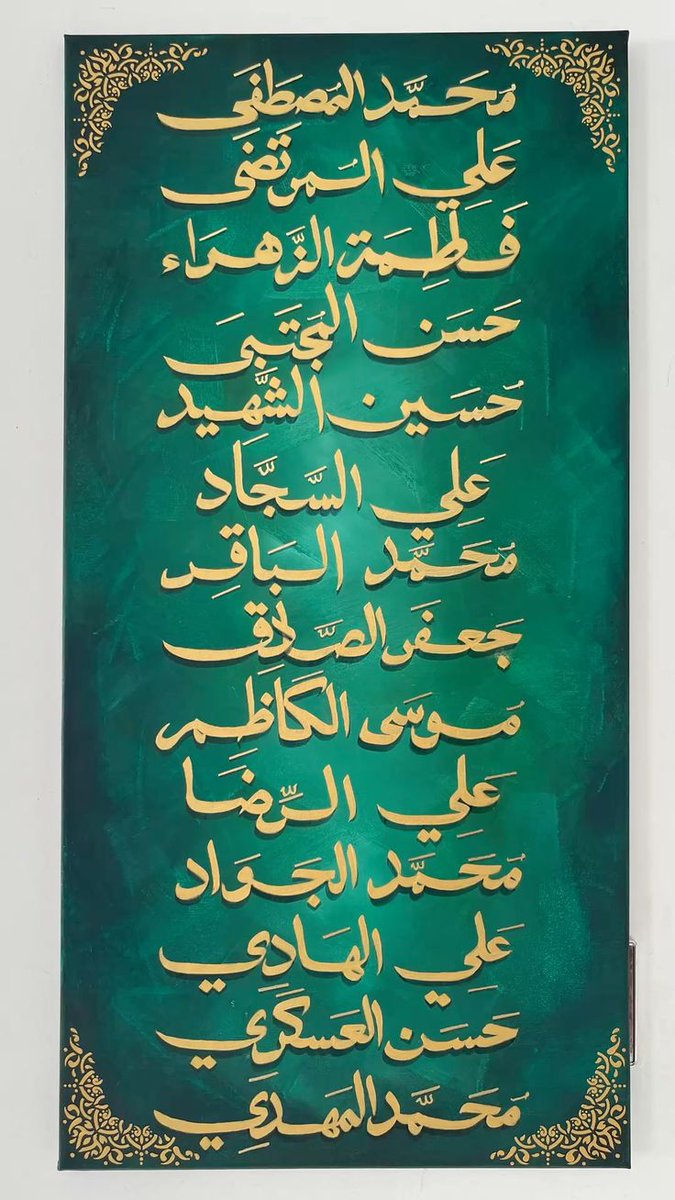 مُحَمَّد المُصطَفَى
عَلِي المُرتَضَى
فَاطِمَة الزَّهرَاء
حَسَن المُجتَبَى
حُسَين الشَّهِيد
عَلِي السَّجَّاد
مُحَمَّد البَاقِر
جَعفَر الصَّادِق
مُوسَى الكَاظِم
عَلِي الرِّضَا
مُحَمَّد الجَوَاد
عَلِي الهَادِي
حَسَن العَسكَرِي
مُحَمَّد المَهدِي